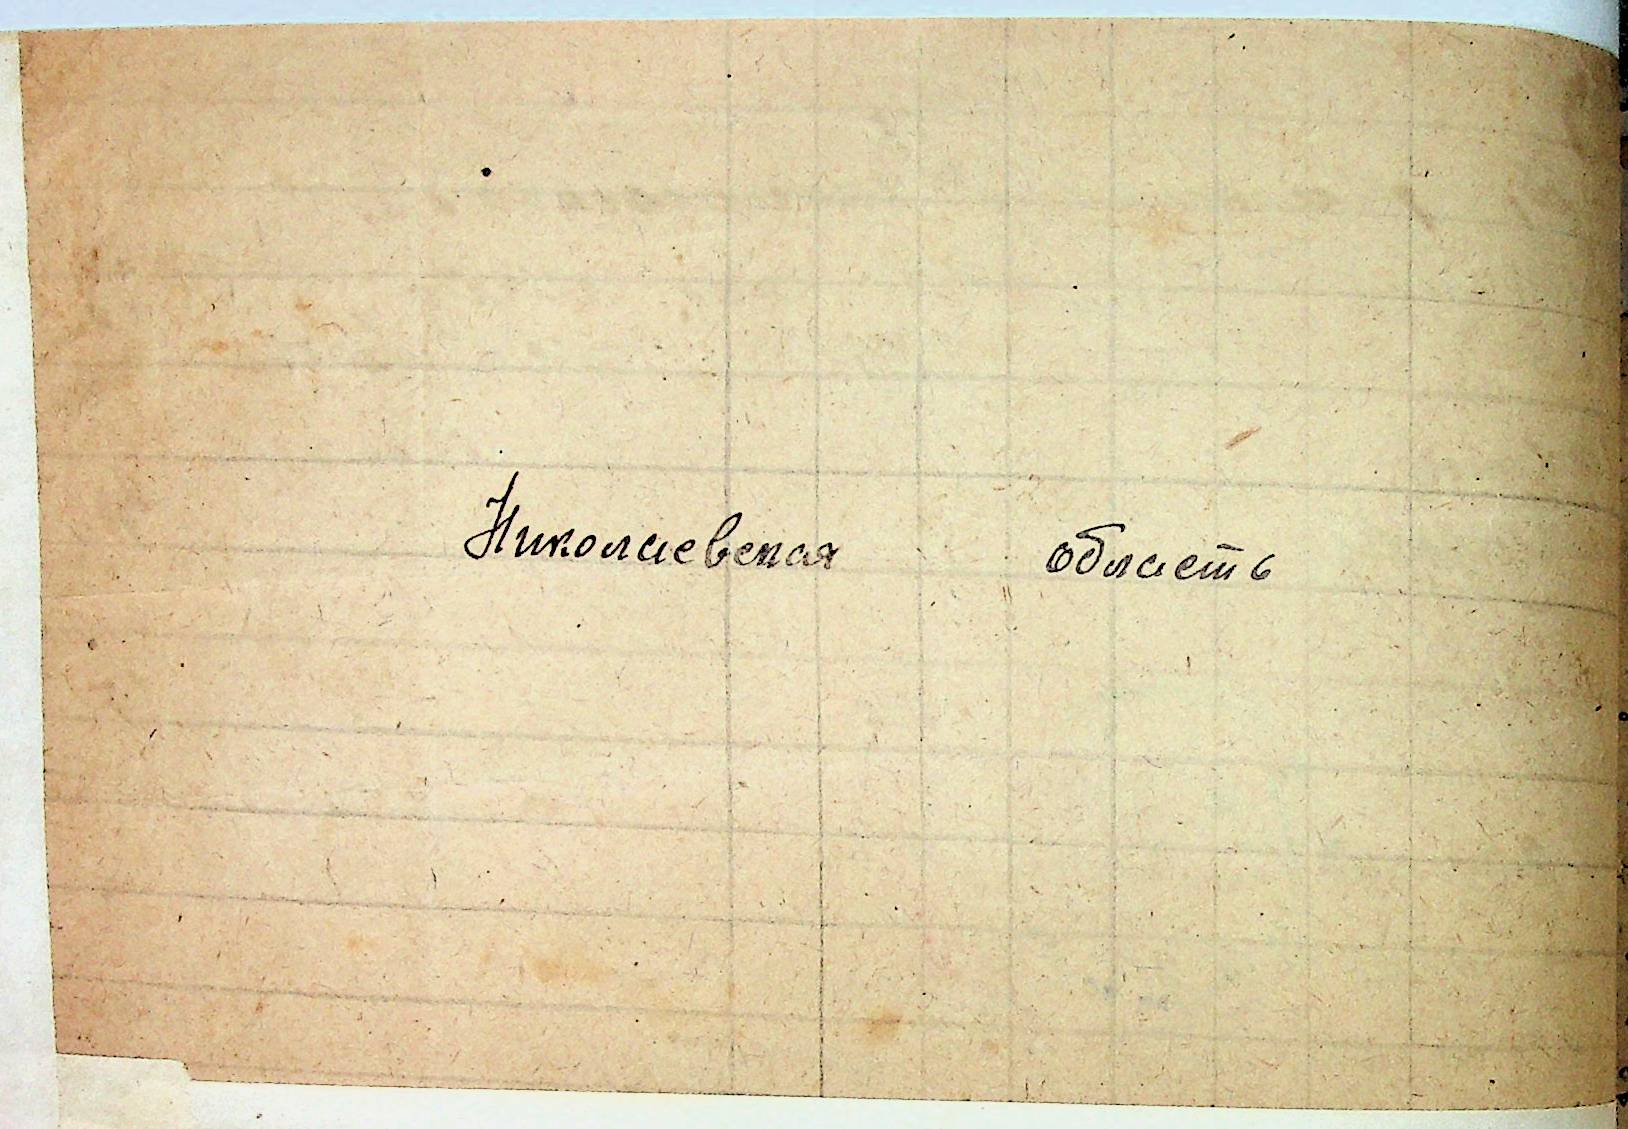 Николаевская область